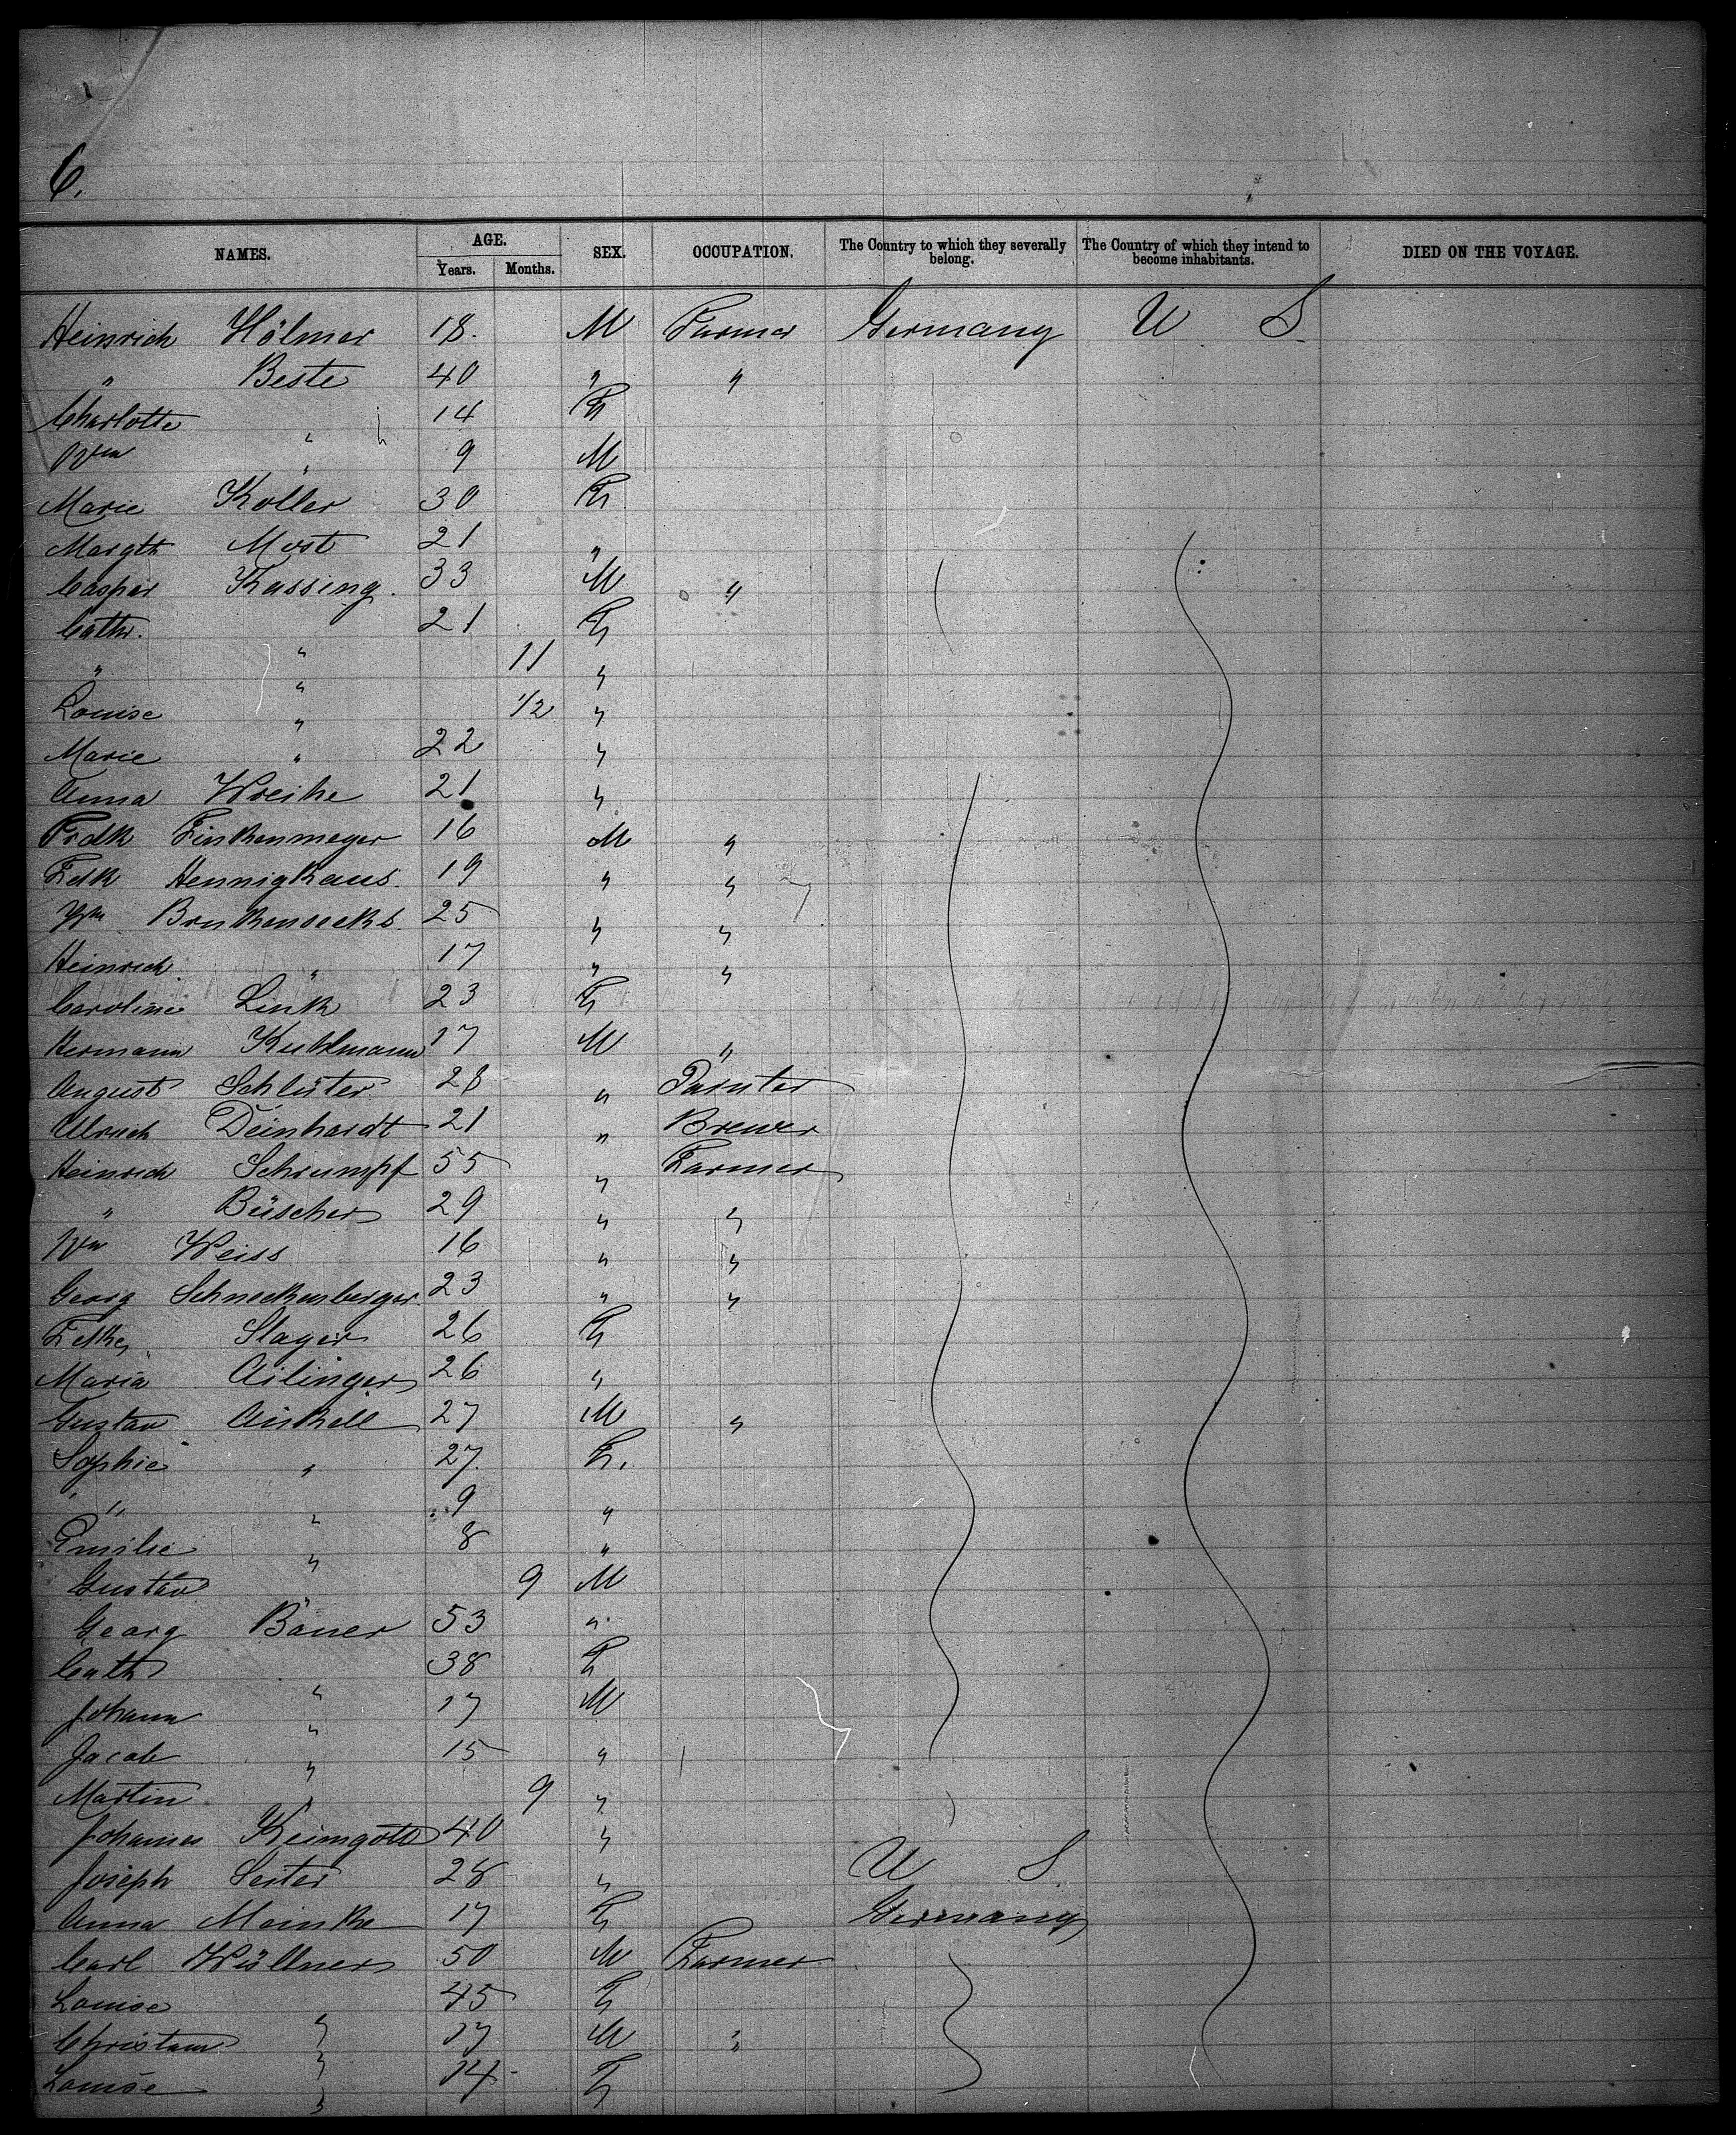 6.
NAMES. AGE. SEX. OCCUPATION. The Country to which they severally belong. The Country of which they intend to become inhabitants. DIED ON THE VOYAGE.
Years. Months.
Heinrich Hölmer 18. M Farmer Germany U S
" Beste 40 " "
Charlotte " 14 F
Wm " 9 M
Marie Koller 30 F
Margth Most 21 "
Caspar Kassing. 33 M "
Cathr. " 21 F
" " 11 "
Louise " 1/2 "
Marie " 22 "
Anna Wreihe 21 "
Frdk Finkenmeyer 16 M "
Fdk Hennigkaus. 19 " "
Wm 25 " "
Heinrich " 17 " "
Caroline Link 23 F
Hermann Kuhlmann 17 M "
August Schlüter 28 " Painter
Ulrich Deinhardt 21 " Brewer
Heinrich Schrumpf 55 " Farmer
" Büscher 29 " "
Wm Weiss 16 " "
Georg Schneckenberger 23 " "
Slager 26 F
Maria Ailinger 26 "
Gustav 27 M "
Sophie " 27. F.
" " 9 "
Emilie " 8 "
Gustav " 9 M
Georg Bauer 53 "
Cath " 38 F
Johann " 17 M
Jacob " 15 "
Martin " 9 "
Johannes Keimgott 40 "
Joseph Sester 28 " U S
Anna Meinke 17 F Germany
Carl Wüllner 50 M Farmer
Louise " 45 F
Christian " 17 M "
Louise " 14 F